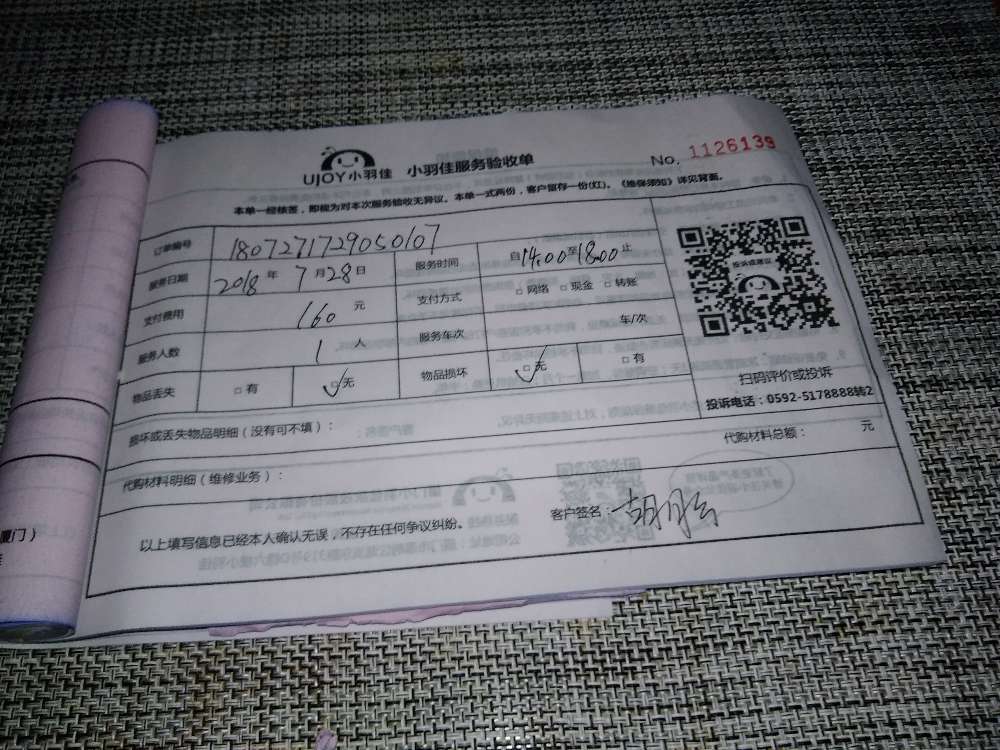 UJOY小羽佳 小羽佳服务验收单 No. 1126139
本单一经核签，即视为对本次服务验收无异议。本单一式两份，客户留存一份(红)。《维保须知》详见背面。
订单编号 1807271729050107
服务日期 2018年7月28日 服务时间 自14:00至18:00止
支付费用 160元 支付方式 □网络 □现金 □转账
服务人数 1人 服务车次 车/次
物品丢失 □有 □无 物品损坏 □无 □有
投诉或建议
扫码评价或投诉
投诉电话：0592-5178888转2
损坏或丢失物品明细（没有可不填）：
代购材料明细（维修业务）： 代购材料总额： 元
以上填写信息已经本人确认无误，不存在任何争议纠纷。 客户签名：胡
厦门）